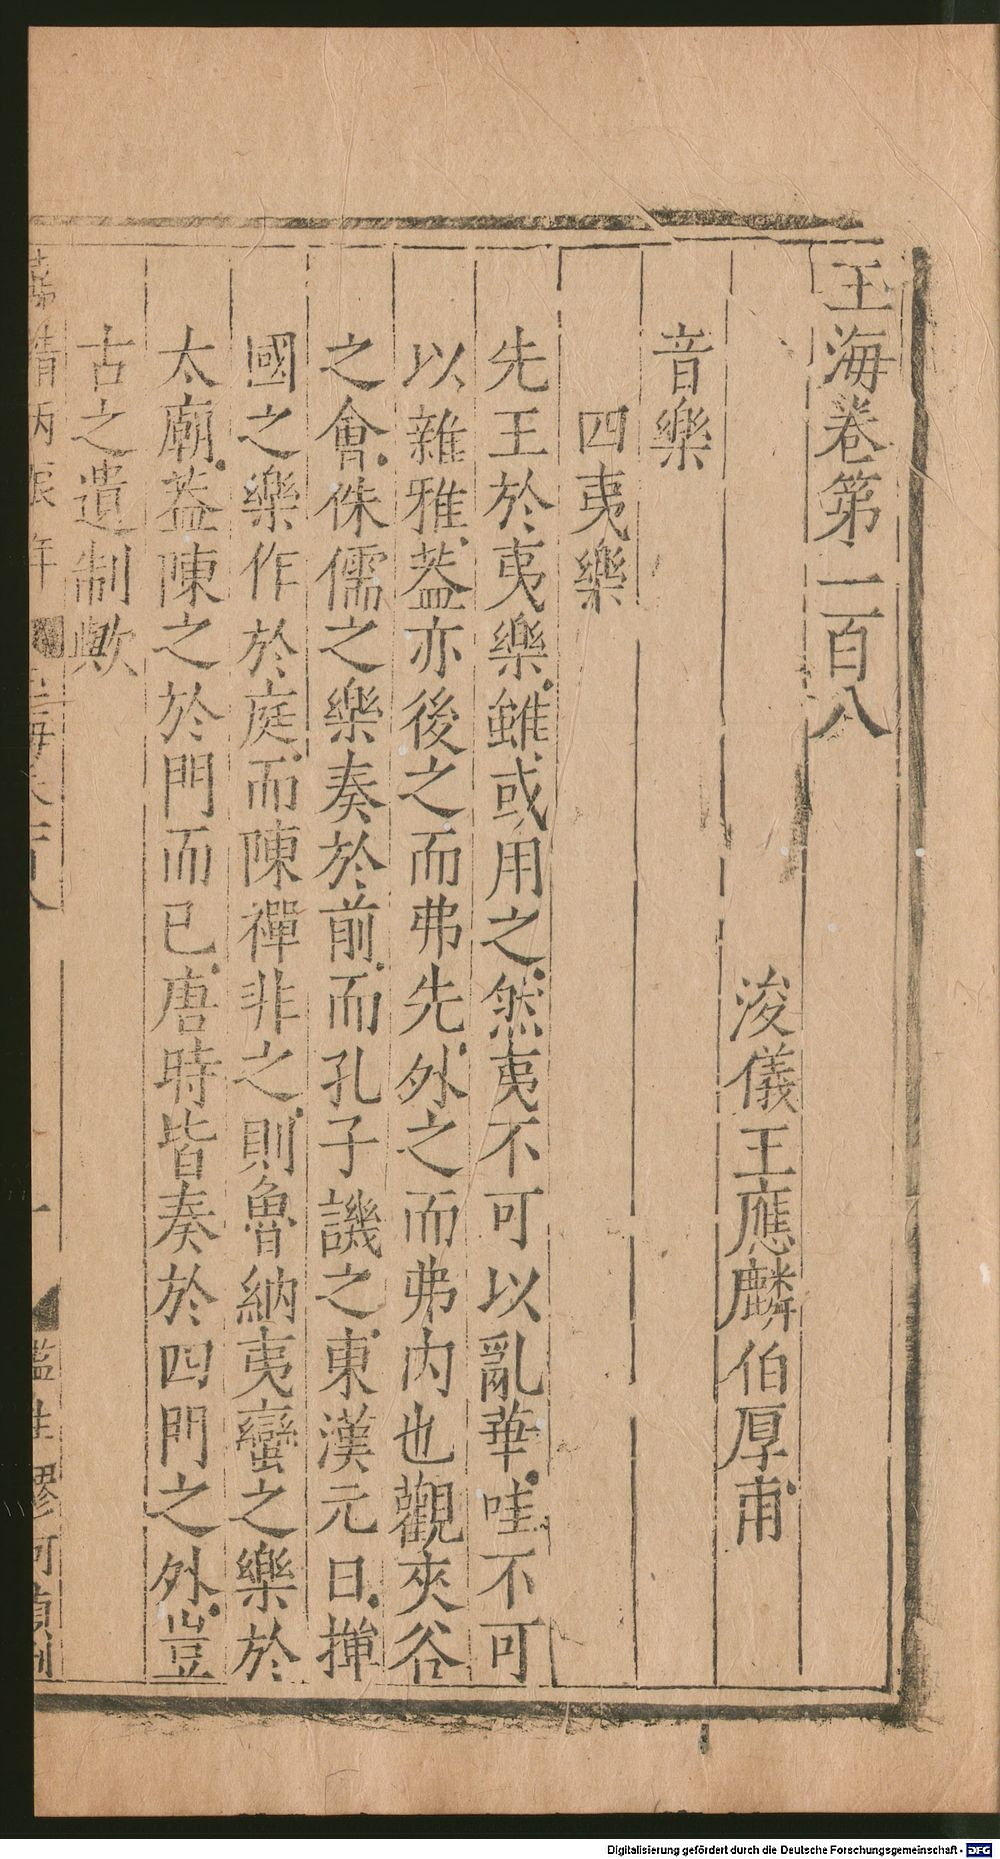 玉海卷第一百八
浚儀王應麟伯厚甫
音樂
四夷樂
先王於夷樂雖或用之然夷不可以亂華哇不可
以雜雅蓋亦後之而弗先外之而弗內也觀夾谷
之會侏儒之樂奏於前而孔子譏之東漢元日撣
國之樂作於庭而陳禪非之則魯納夷蠻之樂於
太廟蓋陳之於門而已唐時皆奏於四門之外豈
古之遺制歟
嘉靖丙辰年 玉海卷百八 一 監生廖 刊
Digitalisierung gefördert durch die Deutsche Forschungsgemeinschaft - DFG